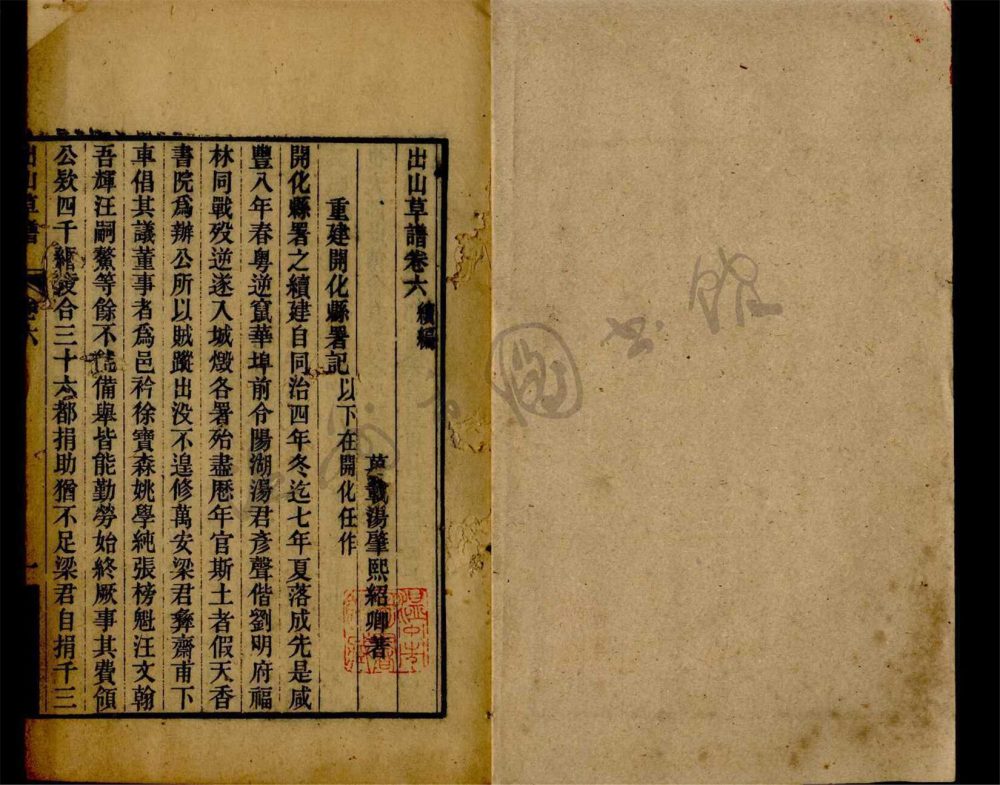 出山草譜卷六 續編
萬載湯肇熙紹卿著
重建開化縣署記 以下在開化任作
開化縣署之續建自同治四年冬迄七年夏落成先是咸
豐八年春粵逆竄華埠前令陽湖湯君彥聲偕劉明府福
林同戰歿逆遂入城燬各署殆盡厯年官斯土者假天香
書院爲辦公所以賊蹤出没不遑修萬安梁君彝齋甫下
車倡其議董事者爲邑衿徐寶森姚學純張榜魁汪文翰
吾輝汪嗣鰲等餘不備舉皆能勤勞始終厥事其費領
公款四千緡合三十六都捐助猶不足梁君自捐千三
出山草譜 卷六 一